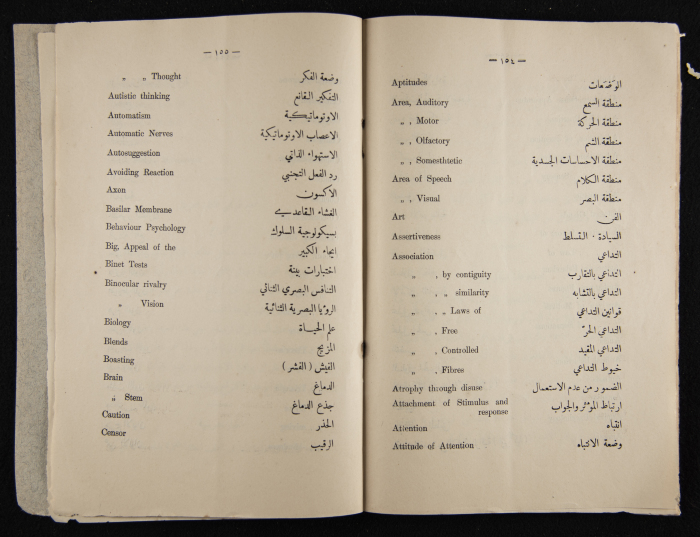 — ١٥٤ —
Aptitudes الوضعات
Area, Auditory منطقة السمع
„ , Motor منطقة الحركة
„ , Olfactory منطقة الشم
„ , Somesthtetic منطقة الاحساسات الجسدية
Area of Speech منطقة الكلام
„ , Visual منطقة البصر
Art الفن
Assertiveness السيادة · التسلط
Association التداعي
„ , by contiguity التداعي بالتقارب
„ , „ similarity التداعي بالتشابه
„ , „ Laws of قوانين التداعي
„ , Free التداعي الحرّ
„ , Controlled التداعي المقيد
„ , Fibres خيوط التداعي
Atrophy through disuse الضمور من عدم الاستعمال
Attachment of Stimulus and
response ارتباط المؤثر والجواب
Attention انتباه
Attitude of Attention وضعة الانتباه
— ١٥٥ —
„ „ Thought وضعة الفكر
Autistic thinking التفكير القانع
Automatism الاوتوماتيكية
Automatic Nerves الاعصاب الاوتوماتيكية
Autosuggestion الاستهواء الذاتي
Avoiding Reaction رد الفعل التجنبي
Axon الاكسون
Basilar Membrane الغشاء القاعدي
Behaviour Psychology بسيكولوجية السلوك
Big, Appeal of the ايحاء الكبير
Binet Tests اختبارات بينة
Binocular rivalry التنافس البصري الثنائي
„ Vision الرؤيا البصرية الثنائية
Biology علم الحياة
Blends المزيج
Boasting الفيش ( الفشر )
Brain الدماغ
„ Stem جذع الدماغ
Caution الحذر
Censor الرقيب